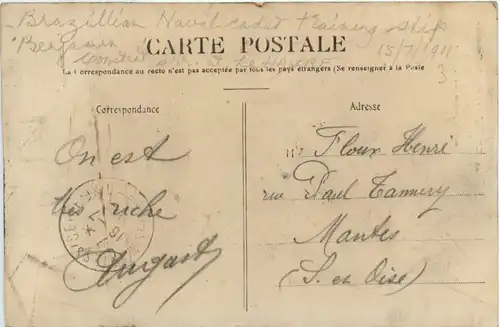 Brazillian Naval cadet training ship
"Benjamin
15/7/1911
CARTE POSTALE
La Correspondance au recto n'est pas acceptée par tous les pays étrangers (Se renseigner à la Poste
3
Correspondance
Adresse
On est
très riche
August
Mr Floux Henri
rue Paul Tannery
Mantes
(S. et Oise)